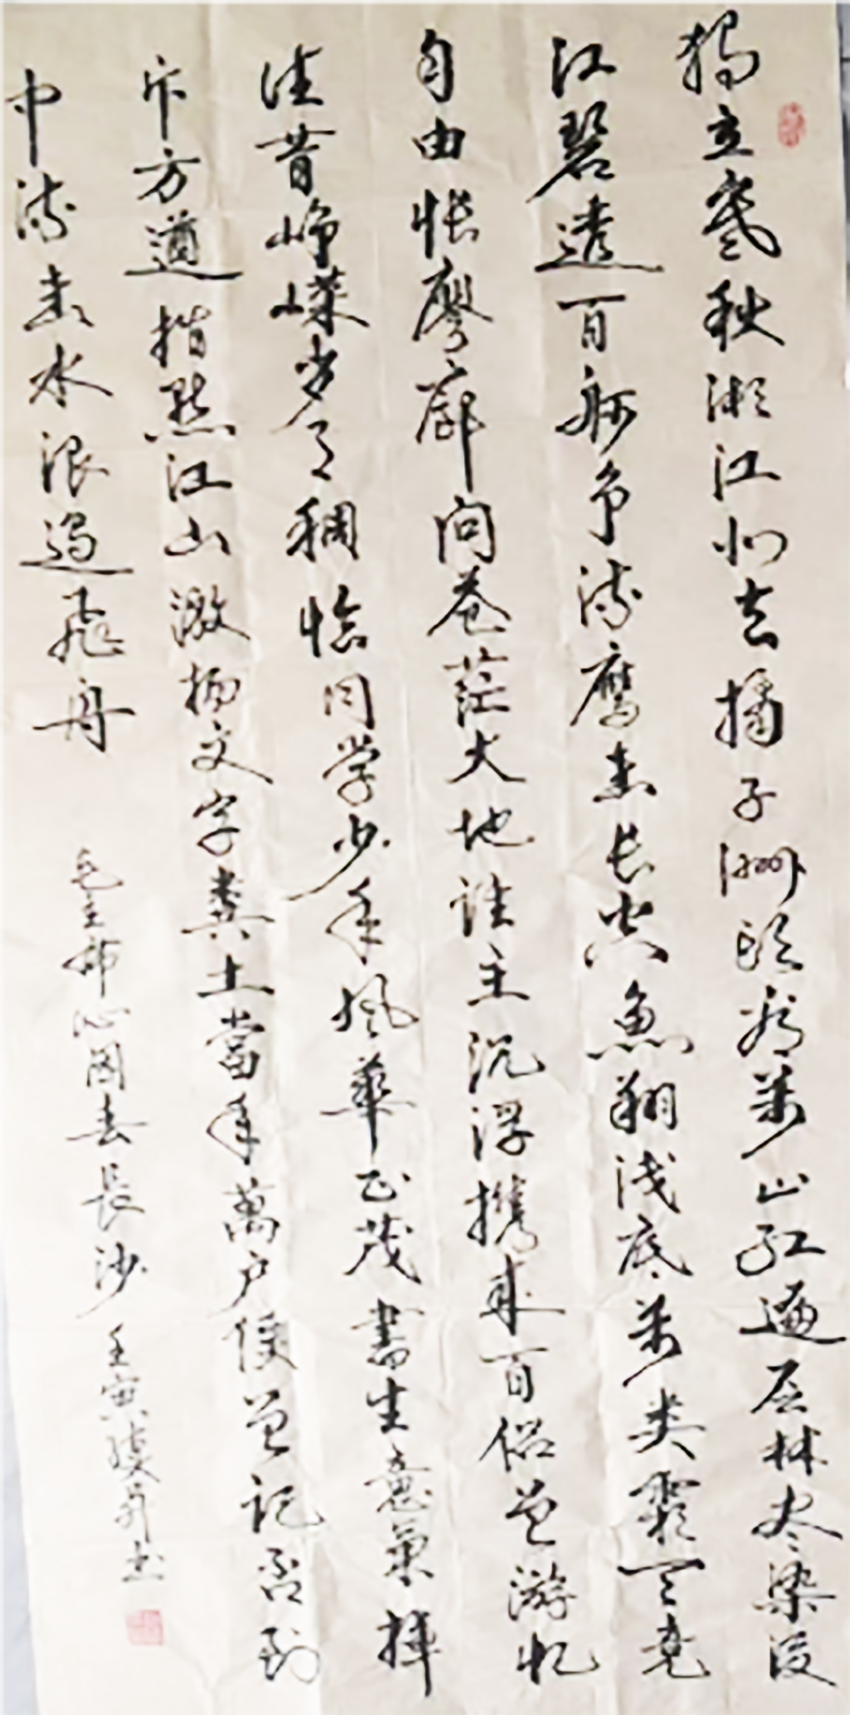 獨立寒秋湘江北去橘子洲头看萬山红遍层林尽染漫
江碧透百舸争流鹰击长空魚翔浅底萬类霜天竞
自由怅寥廓问苍茫大地谁主沉浮携来百侣曾游忆
往昔峥嵘岁月稠恰同学少年风華正茂書生意氣挥
斥方遒指点江山激扬文字粪土當年萬户侯曾记否到
中流击水浪遏飞舟
毛主席沁园春長沙 壬寅